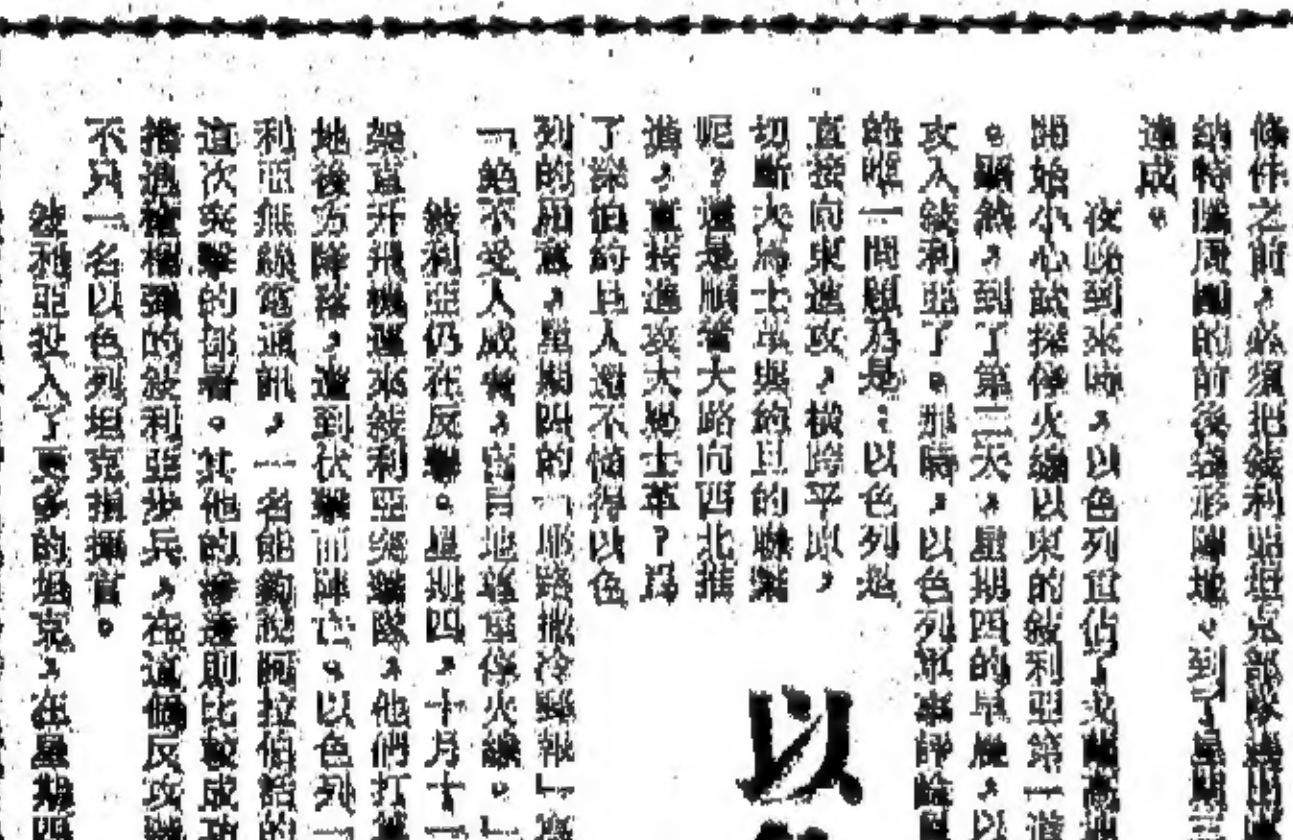 條件之前，必須把敍利亞坦克部隊逐出
納特隆周圍的前後
達成。
夜晚到來時，以色列重佔了戈蘭高地
開始小心試探停火線以東的敍利亞第一道
。顯然，到了第二天，星期四的早晨，以
攻入敍利亞了。那時，以色列軍事評論
的唯一問題乃是：以色列是
直接向東進攻，橫跨平原，
切斷大馬士革與約旦的聯繫
呢？還是順着大路向西北推
進，直接進攻大馬士革？爲
了深怕約旦人還不懂得以色
列的用意，星期四的「耶路撒冷郵報」
「絕不受人威脅，盲目地尊重停火線。」
敍利亞仍在反擊。星期四，十月十一
架直升飛機運來敍利亞突擊隊，他們打
地後方降落，遭到伏擊而陣亡。以色列一
利亞無線電通訊，一名能夠說阿拉伯話的
這次突擊的部署。其他的遭遇則比較成功
敍利亞步兵，在這個反攻
不只一名以色列坦克指揮官。
敍利亞投入了更多的坦克，在星期四
以